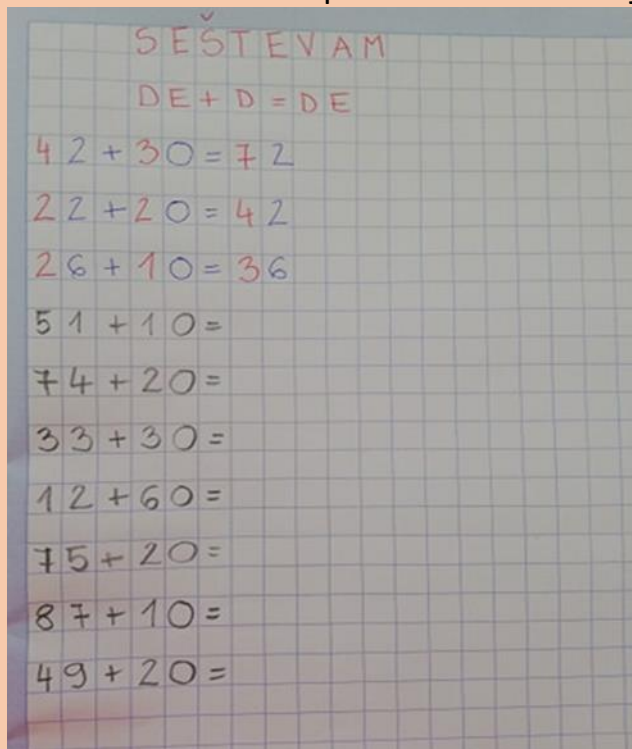 SEŠTEVAM
DE + D = DE
42 + 30 = 72
22 + 20 = 42
26 + 10 = 36
51 + 10 =
74 + 20 =
33 + 30 =
12 + 60 =
75 + 20 =
87 + 10 =
49 + 20 =